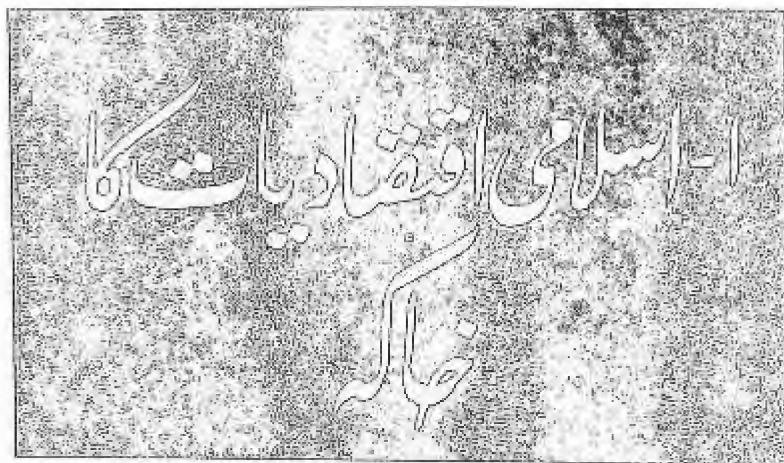 ۱-اسلامی اقتصادیات کا
خاکہ